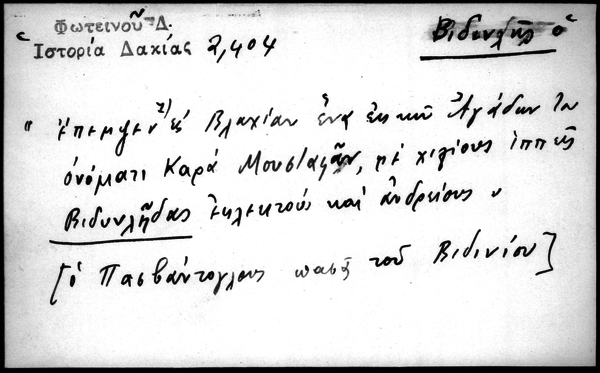 Φωτεινοῦ Δ.
Ἱστορία Δακίας 2,404
Βιδυνλῆς ὁ
"ἔπεμψεν εἰς Βλαχίαν ἕνα ἐκ τῶν Ἀγάδων του
ὀνόματι Καρᾶ Μουσταφᾶν, μὲ χιλίους ἱππεῖς
Βιδυνλῆδας ἐκλεκτοὺς καὶ ἀνδρείους"
[ὁ Πασβάντογλους πασᾶ τοῦ Βιδινίου]